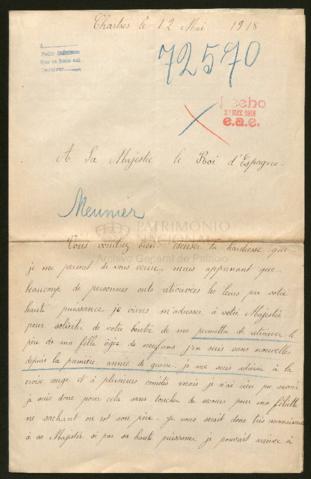 Chartres le 12 Mai 1918
72570
Hecho
e.a.e.
A Sa Majesté le Roi d'Espagne
Meunier
PATRIMONIO
NACIONAL
Archivo General de Palacio
Vous voudrez bien excuser la hardiesse que
je me permet de vous écrire, mais apprenant que
beaucoup de personnes ont retrouvées les leurs par votre
haute puissance, je viens m'adresser à votre Majesté
pour solliciter de votre bonté de me permettre de retrouver le
père de ma fille âgée de neuf ans j'en suis sans nouvelles
depuis la première année de guerre. je me suis adressée à la
croix rouge et à plusieurs comités jamais je n'ai rien pu savoir
je suis donc pour cela sans toucher de secours pour ma fillette
ne sachant où est son père. je vous serait donc très reconnaissante
à sa Majesté si par sa haute puissance je pouvait arriver à